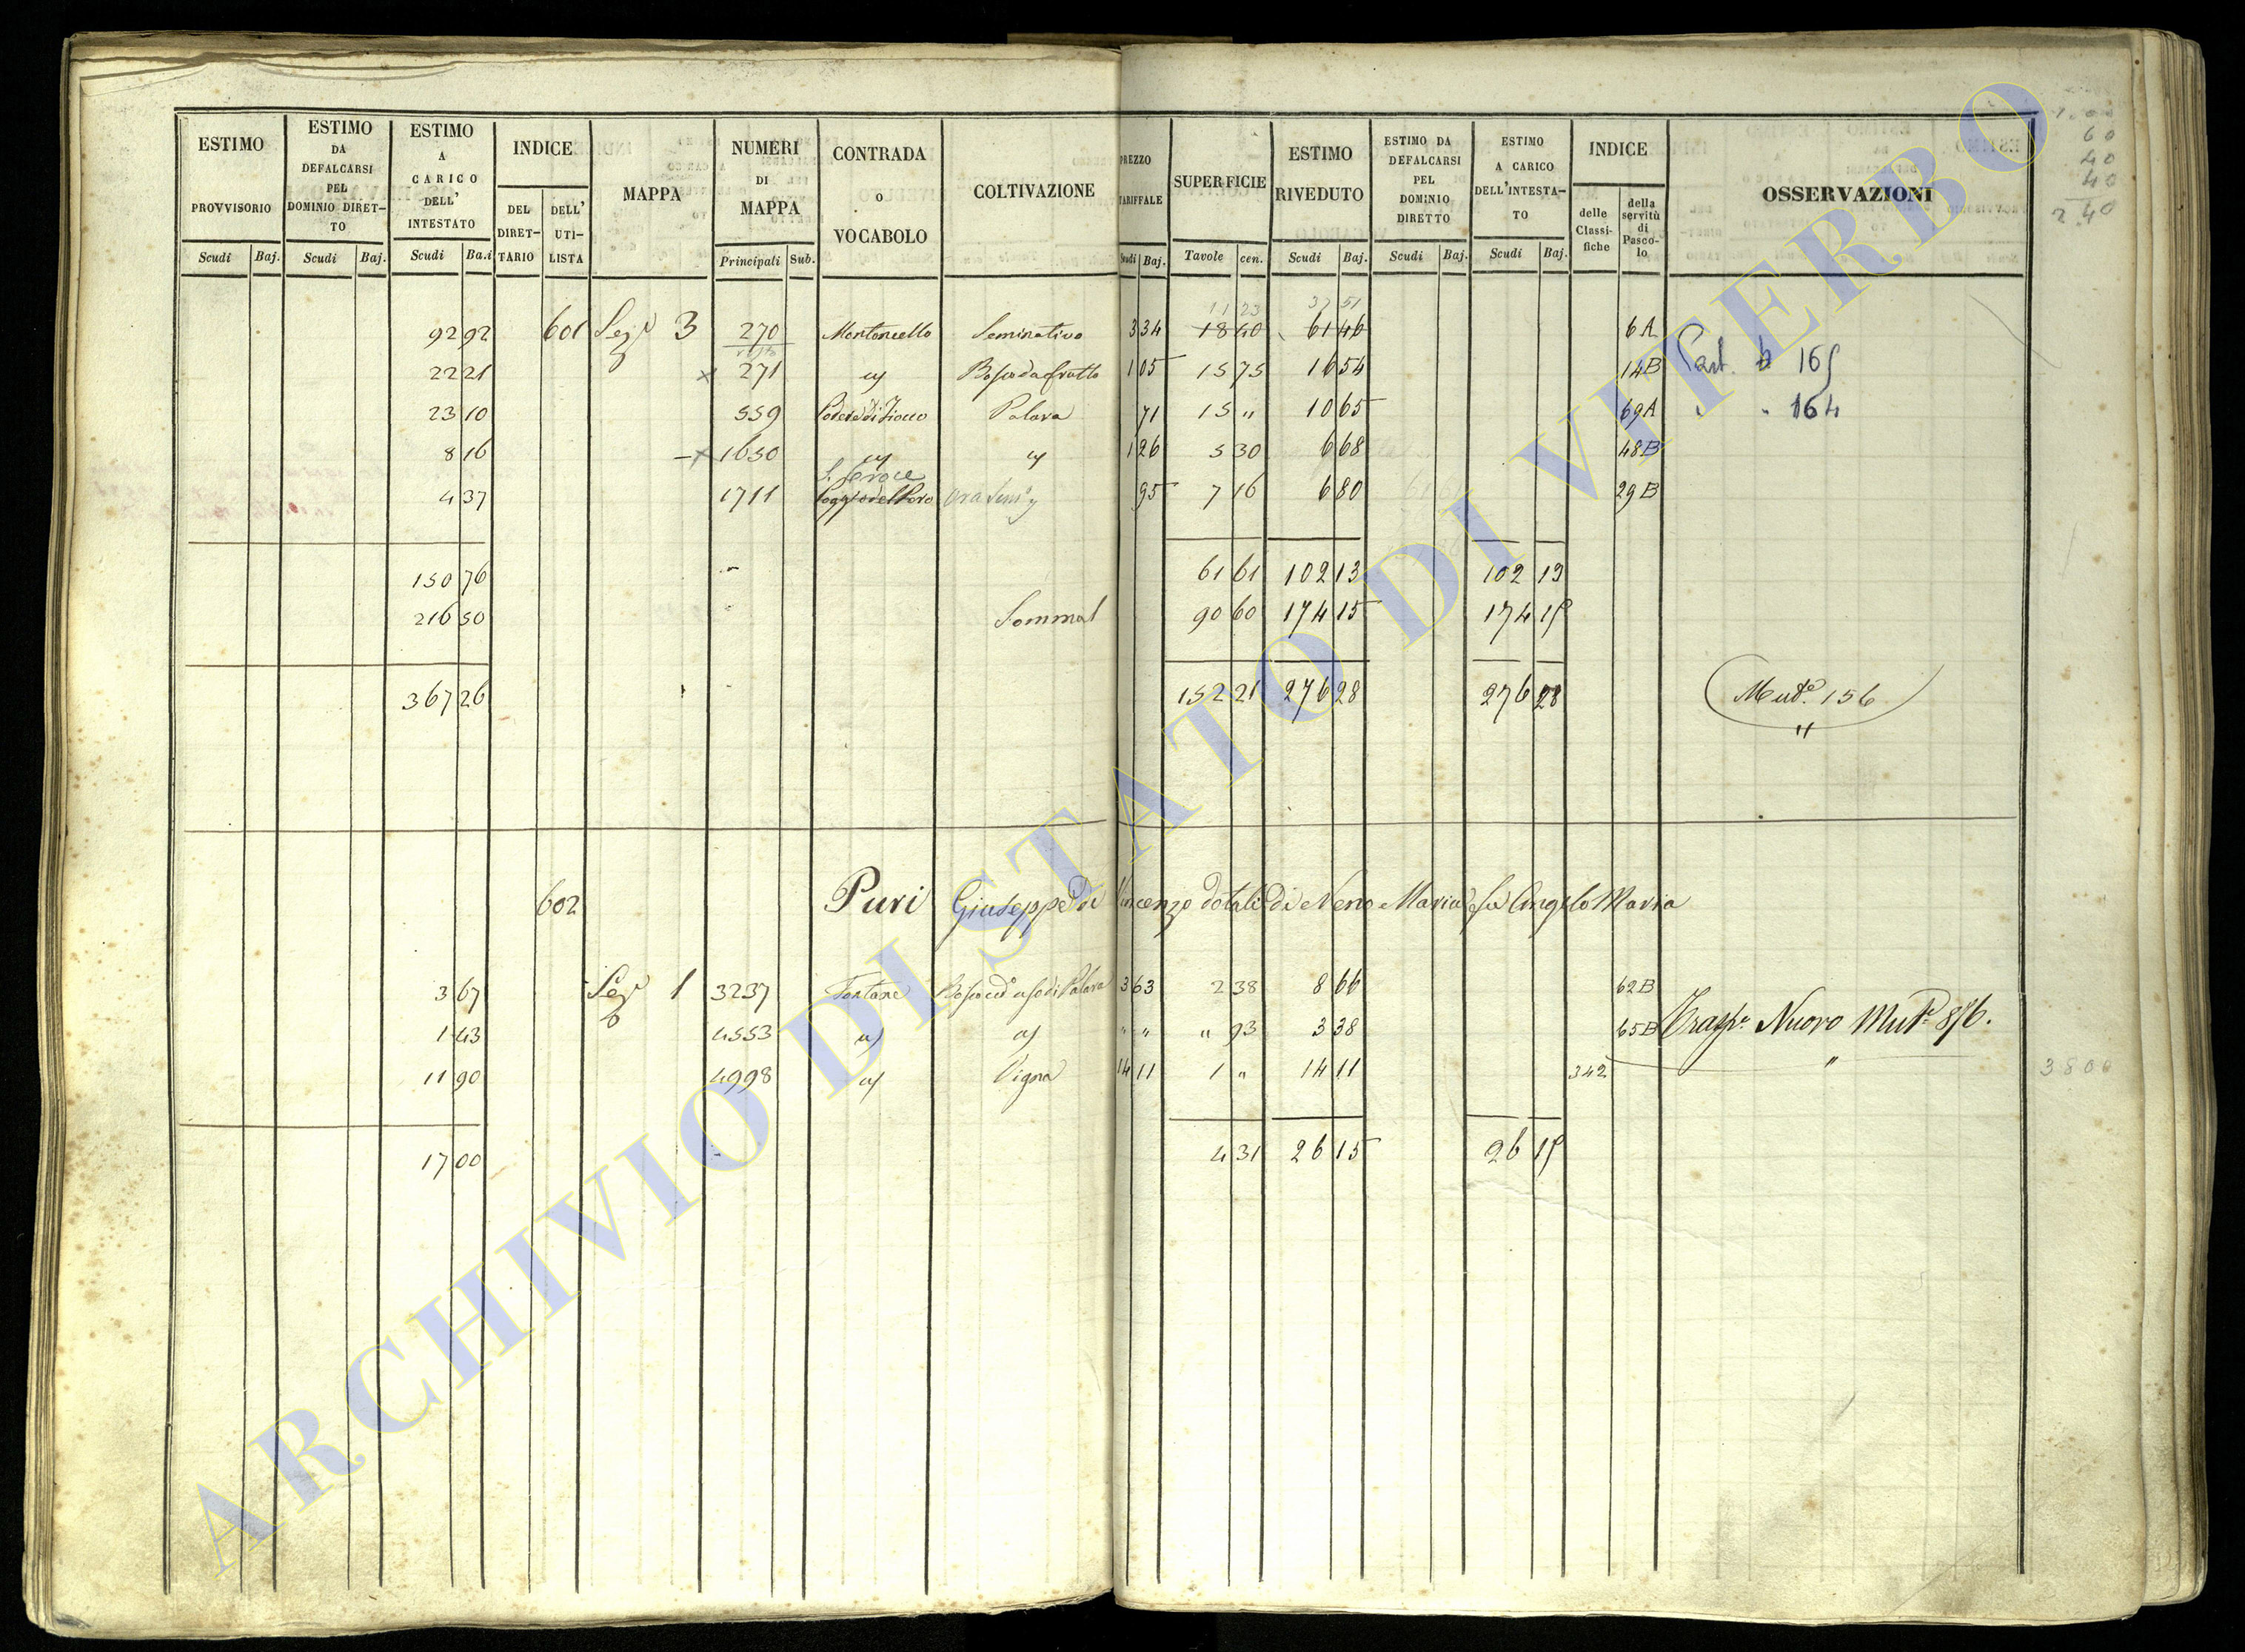 ESTIMO PROVVISORIO Scudi Baj.
ESTIMO DA DEFALCARSI PEL DOMINIO DIRETTO Scudi Baj.
ESTIMO A CARICO DELL' INTESTATO Scudi Ba.i
INDICE DEL DIRETTARIO DELL' UTILISTA
MAPPA
NUMERI DI MAPPA Principali Sub.
CONTRADA o VOCABOLO
COLTIVAZIONE
PREZZO TARIFFALE Scudi Baj.
SUPERFICIE Tavole cen.
ESTIMO RIVEDUTO Scudi Baj.
ESTIMO DA DEFALCARSI PEL DOMINIO DIRETTO Scudi Baj.
ESTIMO A CARICO DELL'INTESTATO Scudi Baj.
INDICE delle Classifiche della servitù di Pascolo
OSSERVAZIONI
60
40
40
2 40
11 23 37 51
92 92 601 Sez.e 3 270 Montoncello Seminativo 3 34 18 40 61 46 6A
22 21 x 271 Bosco da frutto 1 05 15 75 16 54 14B Part. 165
23 10 559 Palara 71 15 " 10 65 69A " 164
8 16 x 1650 1 26 5 30 6 68 48B
4 37 1711 95 7 16 6 80 29B
150 76 61 61 102 13 102 13
216 50 Sommat 90 60 174 15 174 15
367 26 152 21 276 28 276 28 Mut.e 156
"
602 Puri Giuseppe di Vincenzo dotali di Neno Maria fu Angelo Maria
3 67 Sez.e 1 3237 Fontane Bosco ced.o uso di Palara 3 63 2 38 8 66 62B
1 43 4553 " " " 93 3 38 65B Trasp.e Nuovo Mut.e 876.
11 90 4998 Vigna 14 11 1 " 14 11 342 "
3800
17 00 4 31 26 15 26 15
ARCHIVIO DI STATO DI VITERBO